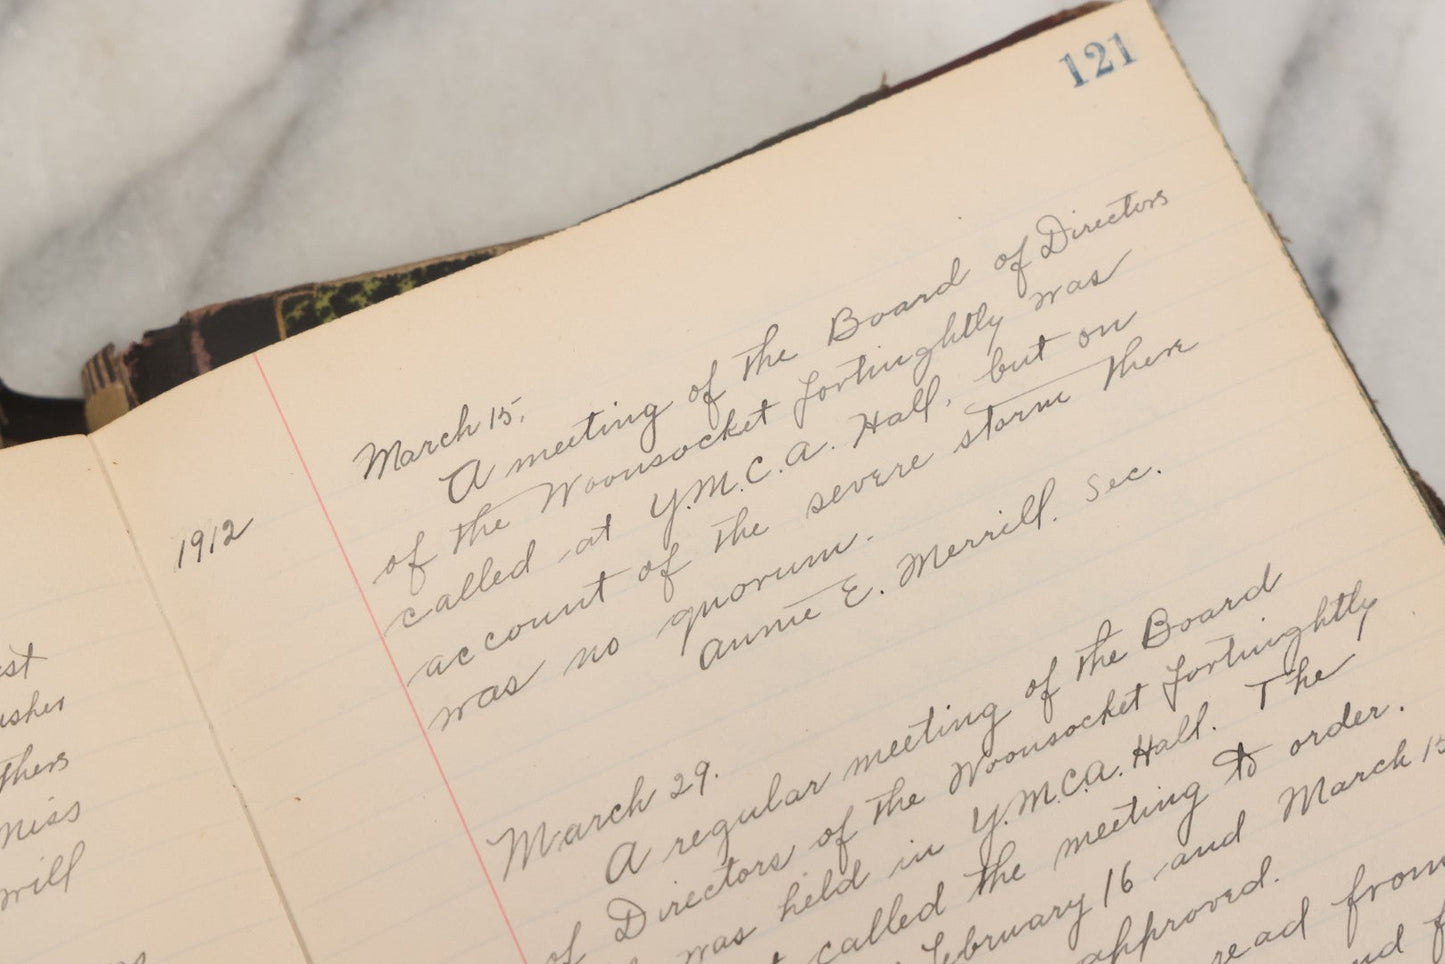 121
1912
March 15.
A meeting of the Board of Directors
of the Woonsocket Fortnightly was
called at Y.M.C.A. Hall, but on
account of the severe storm there
was no quorum.
Annie E. Merrill. Sec.
March 29.
A regular meeting of the Board
of Directors of the Woonsocket Fortnightly
was held in Y.M.C.A. Hall. The
called the meeting to order.
February 16 and March 15
approved.
read from
thers
miss
will